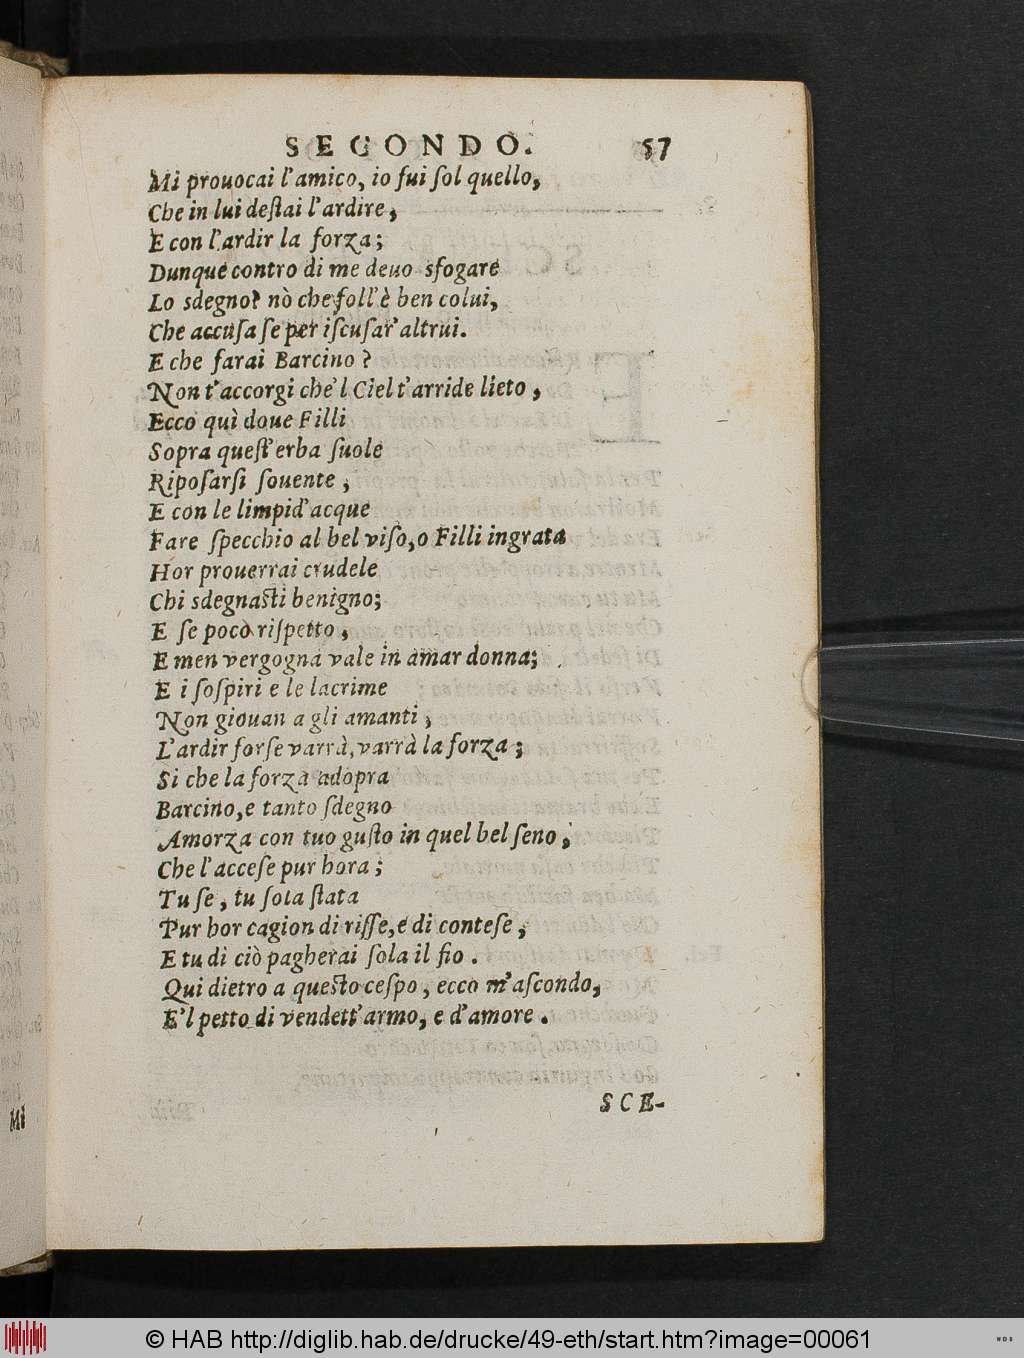 SECONDO. 57
Mi prouocai l'amico, io fui ſol quello,
Che in lui deſtai l'ardire,
E con l'ardir la forza;
Dunque contro di me deuo sfogare
Lo sdegno? nò che foll'è ben colui,
Che accuſa ſe per iſcuſar' altrui.
E che farai Barcino?
Non t'accorgi che'l Ciel t'arride lieto,
Ecco quì doue Filli
Sopra queſt'erba ſuole
Ripoſarſi ſouente,
E con le limpid'acque
Fare ſpecchio al bel viſo, o Filli ingrata
Hor prouerrai crudele
Chi sdegnaſti benigno;
E ſe poco riſpetto,
E men vergogna vale in amar donna;
E i ſoſpiri e le lacrime
Non giouan a gli amanti,
L'ardir forſe varrà, varrà la forza;
Si che la forza adopra
Barcino, e tanto ſdegno
Amorza con tuo guſto in quel bel ſeno,
Che l'acceſe pur hora;
Tu ſe, tu ſola ſtata
Pur hor cagion di riſſe, e di conteſe,
E tu di ciò pagherai ſola il fio.
Qui dietro a queſto ceſpo, ecco m'aſcondo,
E'l petto di vendett'armo, e d'amore.
SCE-
Mi
© HAB http://diglib.hab.de/drucke/49-eth/start.htm?image=00061